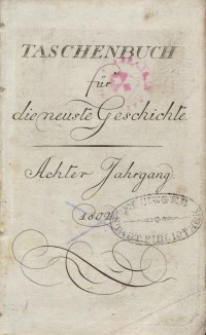 TASCHENBUCH
für
die neuste Geschichte
Achter Jahrgang
1802